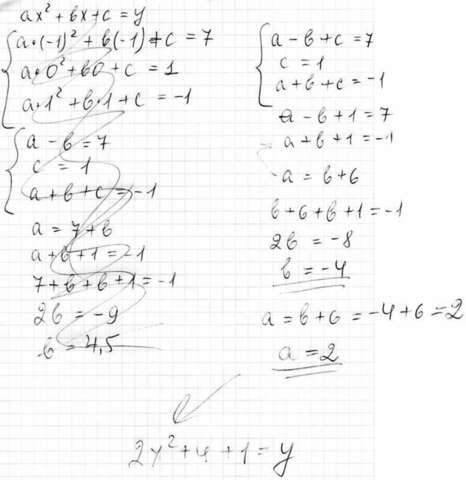 ax² + bx + c = y
a·(-1)² + b(-1) + c = 7
a·0² + b0 + c = 1
a·1² + b·1 + c = -1
a - b = 7
c = 1
a + b + c = -1
a = 7 + b
a + b + 1 = -1
7 + b + b + 1 = -1
2b = -9
b = 4,5
a - b + c = 7
c = 1
a + b + c = -1
a - b + 1 = 7
a + b + 1 = -1
a = b + 6
b + 6 + b + 1 = -1
2b = -8
b = -4
a = b + 6 = -4 + 6 = 2
a = 2
2x² + 4 + 1 = y